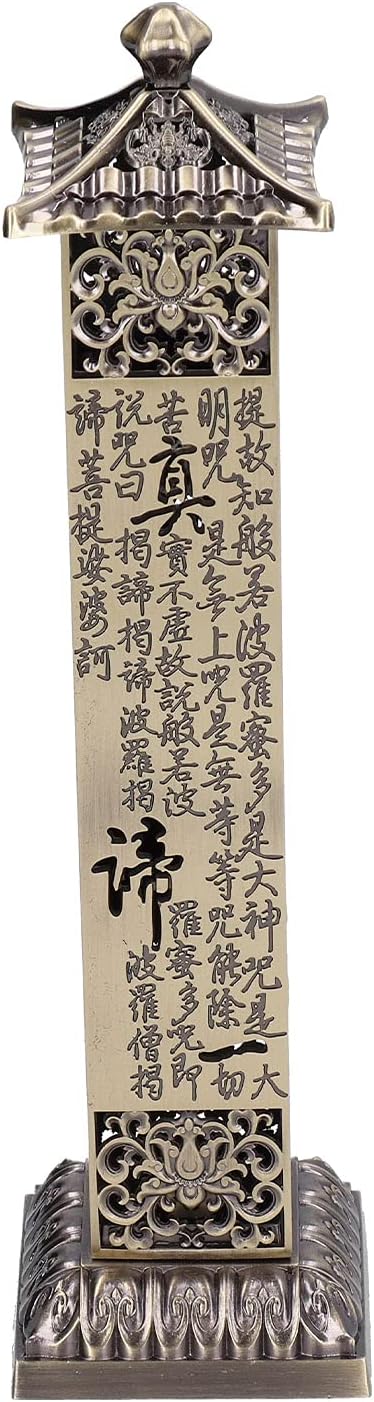 提故知般若波羅蜜多是大神咒是大
明咒是無上咒是無等等咒能除一切
苦真實不虛故説般若波羅蜜多咒即
説咒曰揭諦揭諦波羅揭諦波羅僧揭
諦菩提娑婆訶